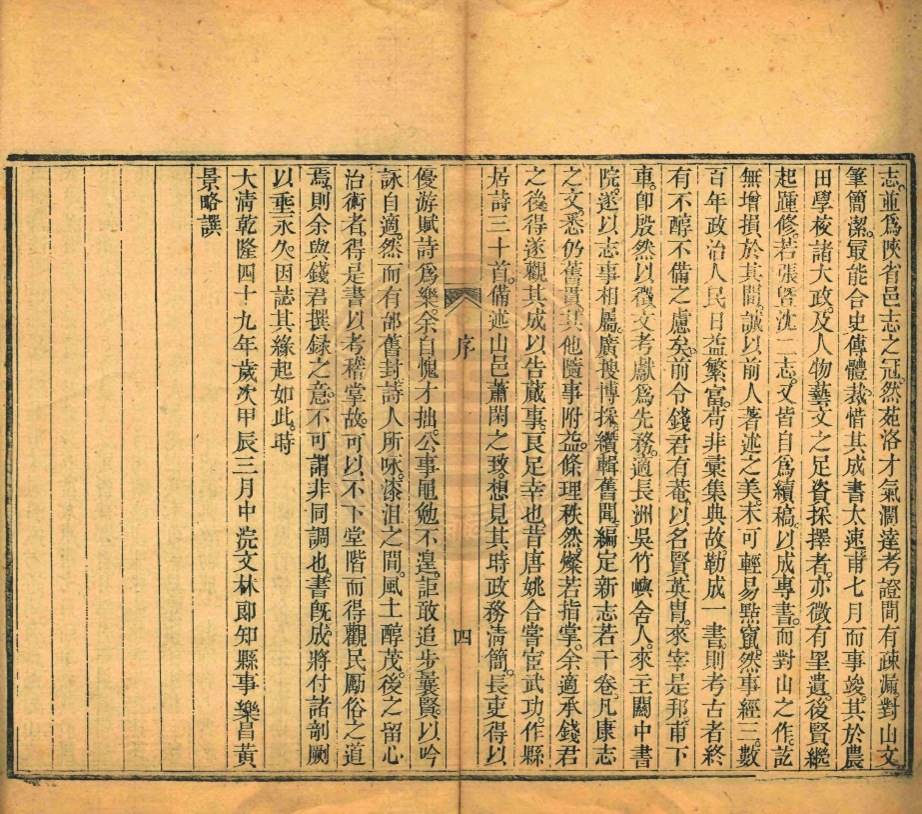 志並爲陝省邑志之冠然苑洛才氣濶達考證間有疎漏對山文
筆簡潔最能合史傳體裁惜其成書太速甫七月而事竣其於農
田學校諸大政及人物藝文之足資採擇者亦微有罣遺後賢繼
起踵修若張暨沈二志又皆自爲續稿以成專書而對山之作訖
無增損於其間誠以前人著述之美未可輕易點竄然事經三數
百年政治人民日益繁富苟非彙集典故勒成一書則考古者終
有不醇不備之慮矣前令錢君有菴以名賢英胄來宰是邦甫下
車卽殷然以徵文考獻爲先務適長洲吳竹嶼舍人來主關中書
院遂以志事相屬廣搜博採纘輯舊聞編定新志若干卷凡康志
之文悉仍舊貫其他隨事附益條理秩然燦若指掌余適承錢君
之後得遂觀其成以告蕆事良足幸也昔唐姚合嘗宦武功作縣
居詩三十首備述山邑蕭閑之致想見其時政務淸簡長吏得以
序
四
優游賦詩爲樂余自愧才拙公事黽勉不遑詎敢追步曩賢以吟
詠自適然而有邰舊封詩人所咏漆沮之間風土醇茂後之留心
治術者得是書以考稽掌故可以不下堂階而得觀民勵俗之道
焉則余與錢君撰錄之意不可謂非同調也書旣成將付諸剞劂
以垂永久因誌其緣起如此時
大淸乾隆四十九年歲次甲辰三月中浣文林郎知縣事樂昌黃
景略譔